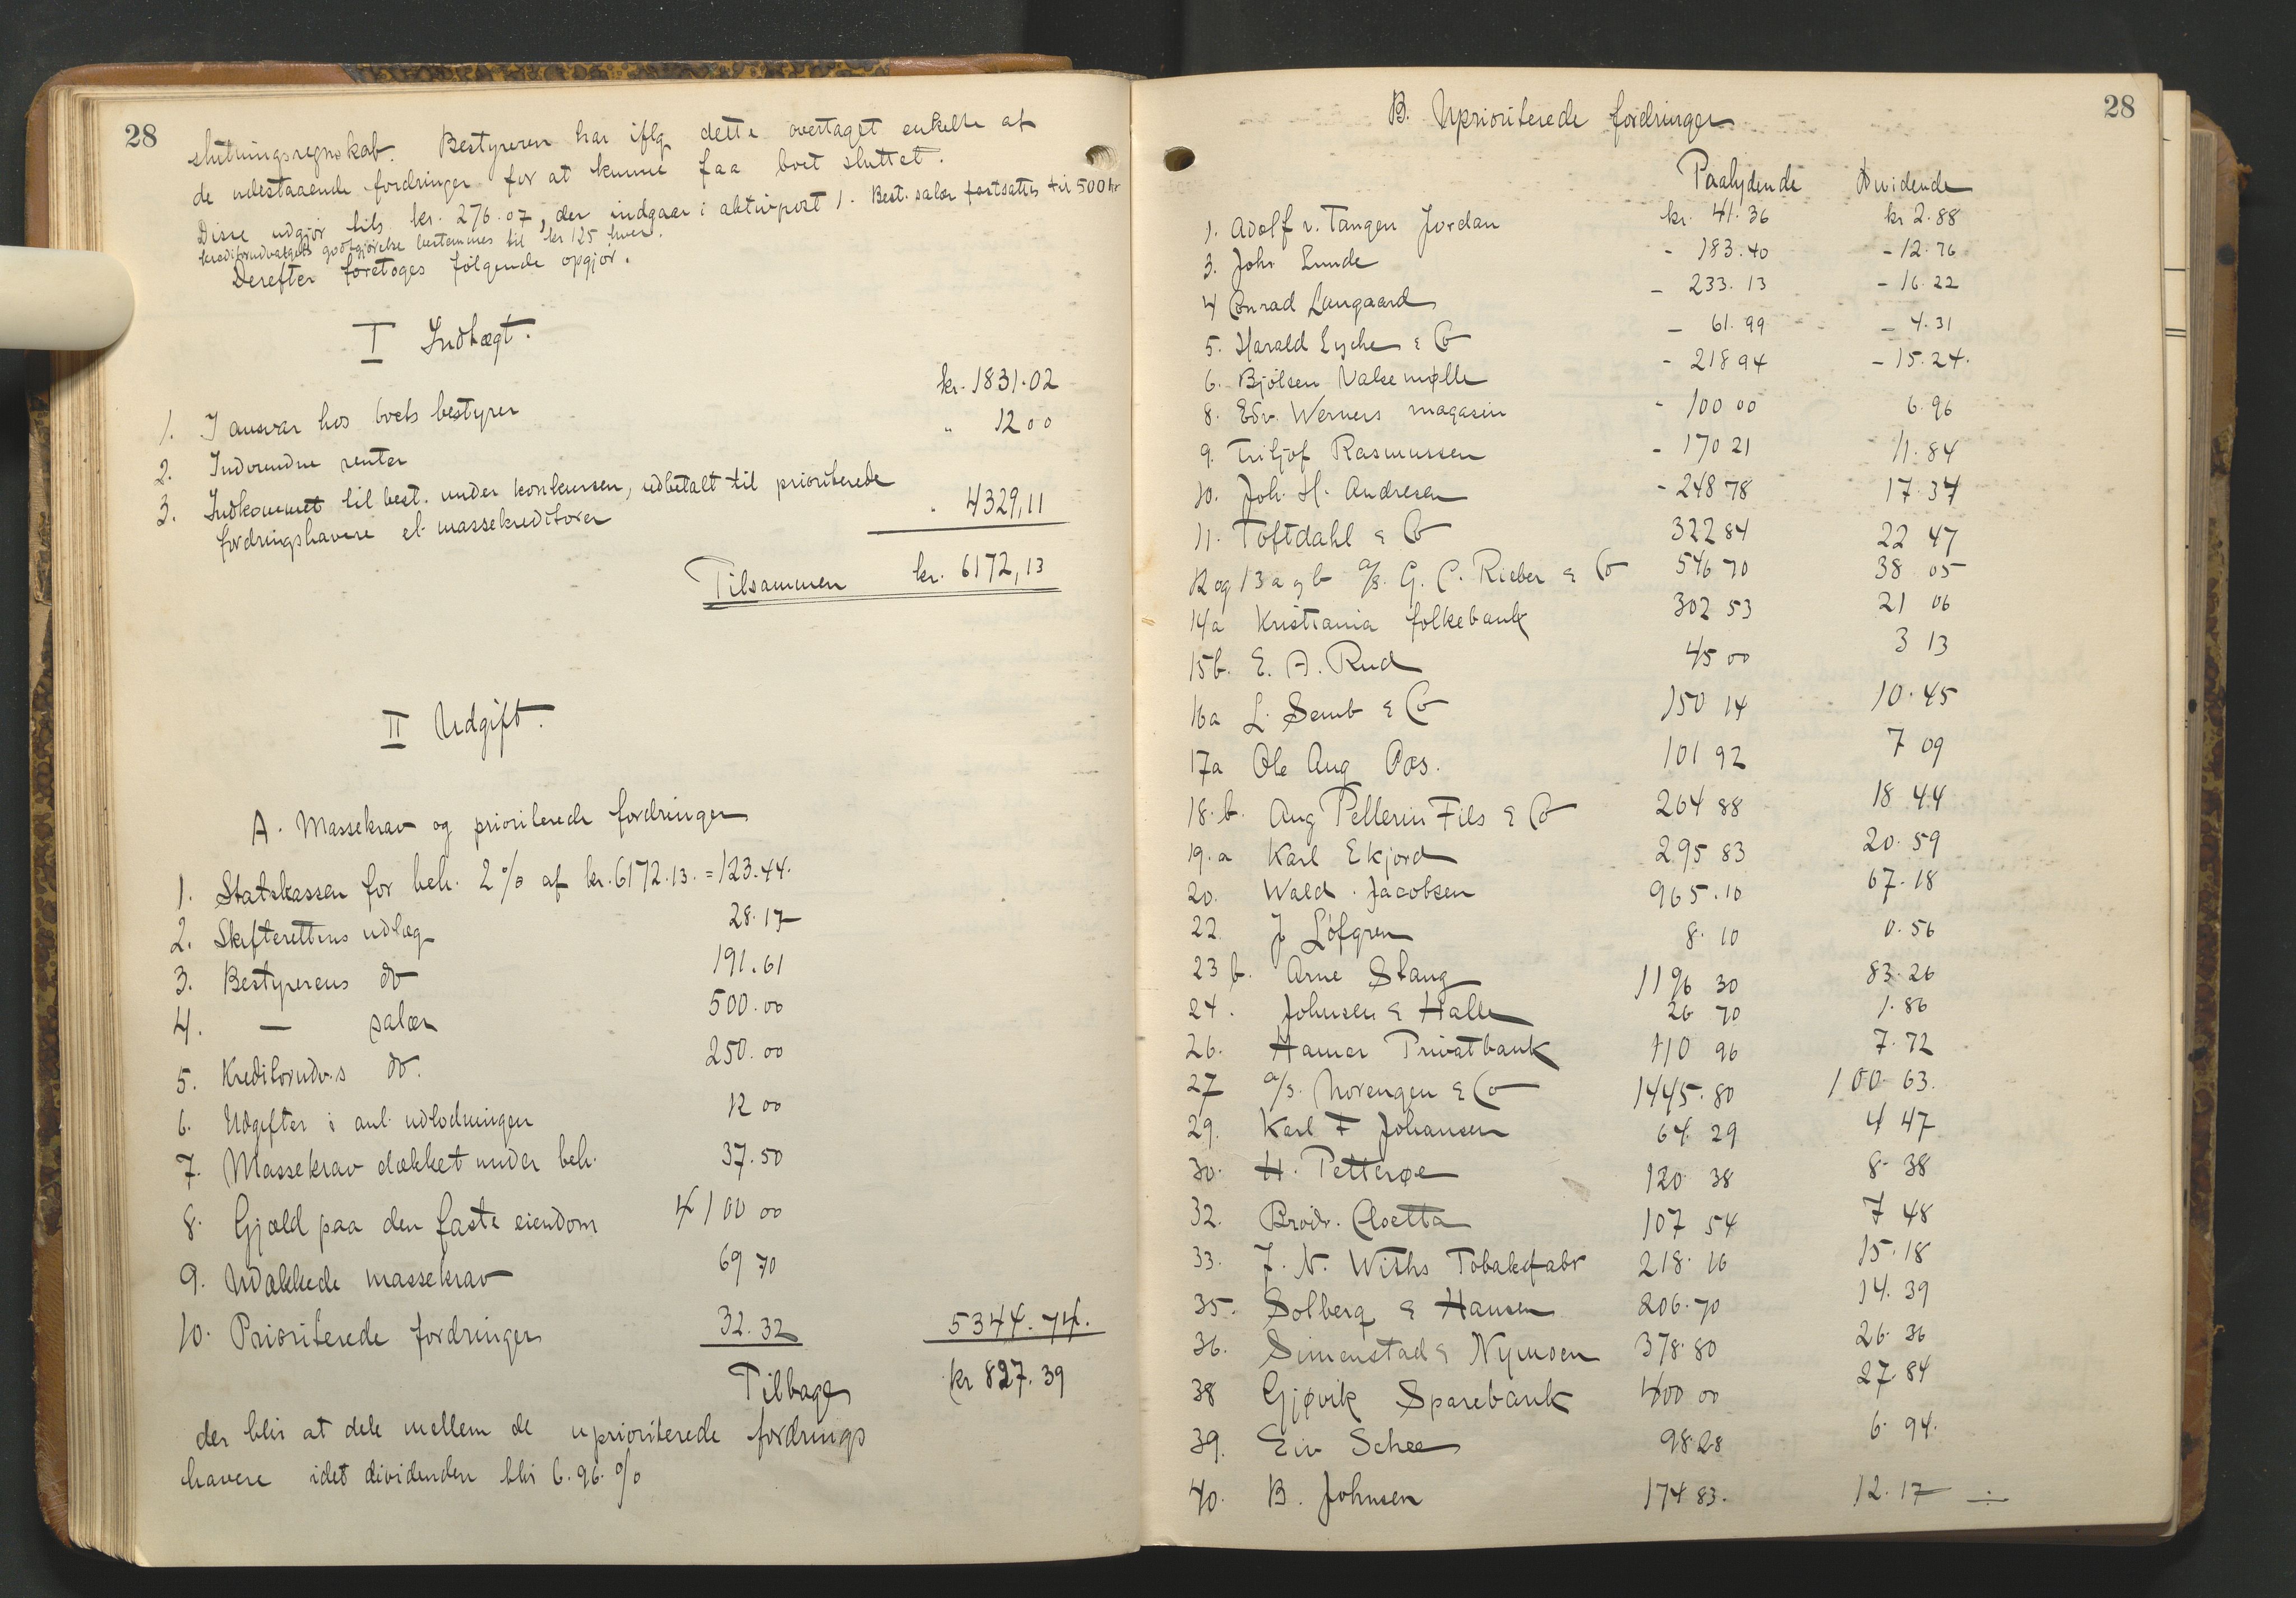 28
slutningsregnskab. Bestyreren har iflg dette overtaget enkelte af
de udestaaende fordringer for at kunne faa boet sluttet.
Disse udgjør tils. kr. 276.07, der indgaar i aktivpost 1. Best. salær fastsattes til 500 kr
kreditorudvalgets godtgjørelse bestemmes til kr 125 hver.
Derefter foretoges følgende opgjør.
I Indtægt.
1. I ansvar hos boets bestyrer kr. 1831.02
2. Indvundne renter " 12 00
3. Indkommet til best. under konkursen, udbetalt til prioriterede
fordringshavere el. massekreditorer " 4329,11
Tilsammen kr. 6172,13
II Udgift.
A. Massekrav og prioriterede fordringer
1. Statskassen for beh. 2% af kr. 6172.13. = 123.44.
2. Skifterettens udlæg 28.17
3. Bestyrerens do 191.61
4. — salær 500.00
5. Kreditorudv.s do. 250.00
6. Udgifter i anl. udlodningen 12 00
7. Massekrav dækket under beh. 37.50
8. Gjæld paa den faste eiendom 4100 00
9. Udækkede massekrav 69 70
10. Prioriterede fordringer 32.32 5344.74.
Tilbage kr 827.39
der blir at dele mellem de uprioriterede fordrings
havere idet dividenden blir 6.96.%
28
B. Uprioriterede fordringer
Paalydende Dividende
1. Adolf v. Tangen Jordan kr. 41.36 kr 2.88
3. Johs Lunde - 183.40 - 12.76
4 Conrad Langaard - 233.13 - 16.22
5. Harald Lyche & Co - 61.99 - 4.31
6. Bjølsen Valsemølle - 218 94 - 15.24.
8. Edv. Werners magasin - 100 00 6.96
9. Fritjof Rasmussen - 170 21 11.84
10. Joh. H. Andresen - 248 78 17.37
11. Toftdahl & Co 322 84 22 47
12 og 13 a og b a/s. G. C. Rieber & Co 546 70 38 05
14a Kristiania folkebank 302 53 21 06
15b. E. A. Rud 45 00 3 13
16a L. Semb & Co 150 14 10.45
17a Ole Aug Aas. 101 92 7 09
18.b. Aug Pellerin Fils & Co 264 88 18 44
19.a Karl Ekjord 295 83 20.59
20. Wald. Jacobsen 965.10 67.18
22. J Löfgren 8.10 0.56
23 b. Arne Stang 1196 30 83.26
24. Johnsen & Halle 26 70 1.86
26. Hamar Privatbank 110 96 7.72
27 a/s. Norengen & Co 1445.80 100 63.
29. Karl F Johansen 64 29 4 47
30. H. Petterøe 120 38 8.38
32. Brødr. Cloetta 107 54 7 48
33. J. N. Withs Tobaksfabr 218.16 15.18
35. Solberg & Hansen 206.70 14.39
36. Simenstad & Nymoen 378.80 26.36
38 Gjøvik Sparebank 400 00 27.84
39. Eiv Schee 98.28 6.94.
40. B. Johnsen 174 83. 12.17